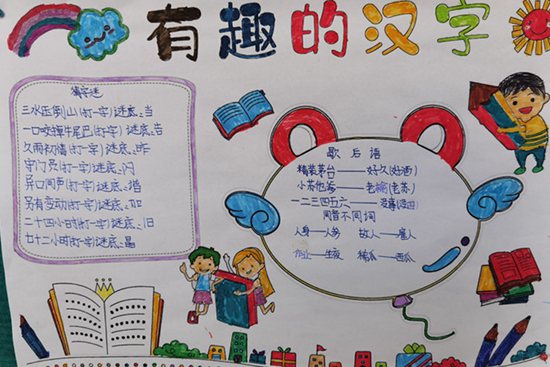 有趣的汉字
猜字迷
三水压倒山(打一字)谜底、当
一口咬掉牛尾巴(打一字)谜底、告
久雨初晴(打一字)谜底、昨
守门员(打一字)谜底、闪
异口同声(打一字)谜底、谐
另有变动(打一字)谜底、加
二十四小时(打一字)谜底、旧
七十二小时(打一字)谜底、晶
歇后语
精装茅台——好久(好酒)
一二三四五六——没事
同音不同词
人身——人参 故人——雇人
作业——昨夜 稀瓜——西瓜